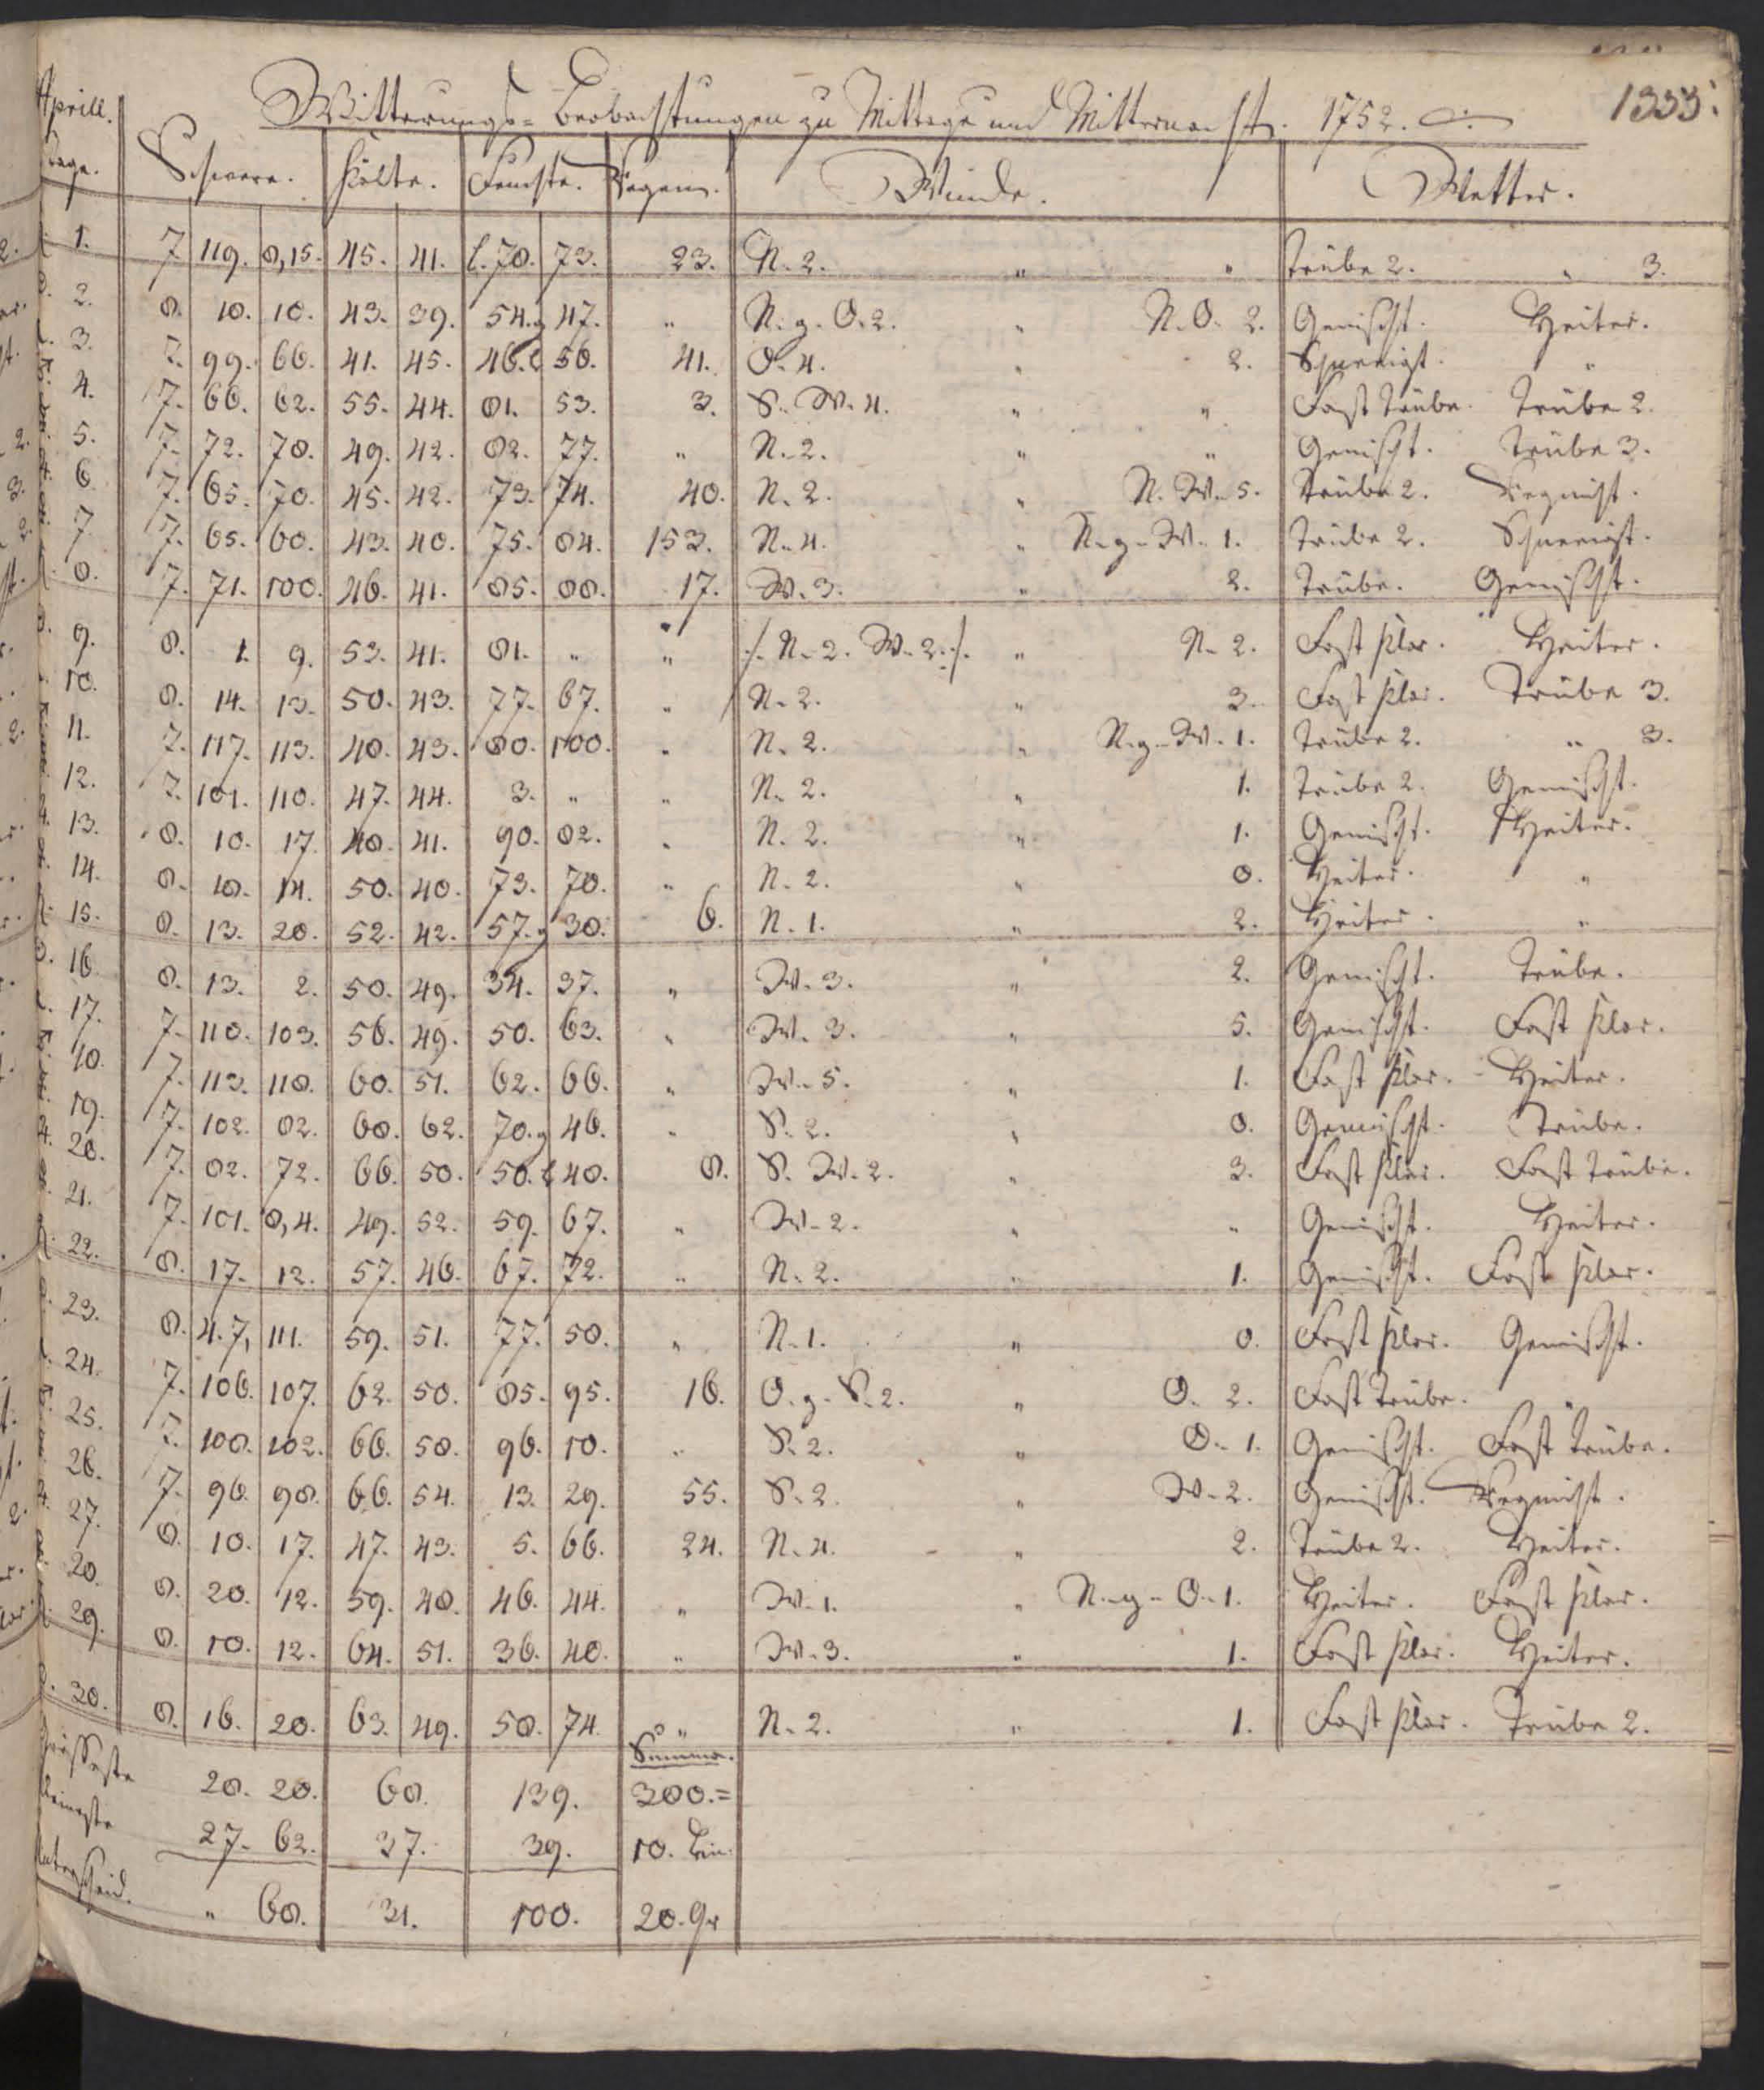 1333.
Aprill. Witterungs-Beobachtungen zu Mittage und Mitternacht. 1752.
Tage. Schwere. Kälte. Feuchte. Regen. Winde. Wetter.
1. 7. 119. 8,15. 45. 41. l. 78. 73. 23. N. 2. " " Trübe 2. " 3.
2. 8. 10. 18. 43. 39. 54. g 47. " N. g. O. 2. " N. O. 2. Gemischt. Heiter.
3. 7. 99. 66. 41. 45. 46. l 56. 41. O. 4. " 2. Schneeigt. "
4. 7. 66. 62. 55. 44. 81. 53. 3. S. W. 4. " " Fast Trübe. Trübe 2.
5. 7. 72. 78. 49. 42. 82. 77. " N. 2. " " Gemischt. Trübe 3.
6. 7. 65. 70. 45. 42. 73. 74. 40. N. 2. " N. W. 5. Trübe 2. Regnicht.
7. 7. 65. 60. 43. 40. 75. 84. 153. N. 4. " N. g. W. 1. Trübe 2. Schneeigt.
8. 7. 71. 100. 46. 41. 85. 88. 17. W. 3. " 2. Trübe. Gemischt.
9. 8. 1. 9. 53. 41. 81. " " /. N. 2. W. 2. /. " N. 2. Fast klar. Heiter.
10. 8. 14. 13. 50. 43. 77. 67. " N. 2. " 3. Fast klar. Trübe 3.
11. 7. 117. 113. 48. 43. 80. 100. " N. 2. " N. g. W. 1. Trübe 2. " 3.
12. 7. 101. 118. 47. 44. 3. " " N. 2. " 1. Trübe 2. Gemischt.
13. 8. 10. 17. 48. 41. 90. 82. " N. 2. " 1. Gemischt. Heiter.
14. 8. 18. 14. 50. 40. 73. 70. " N. 2. " 0. Heiter. "
15. 8. 13. 20. 52. 42. 57. g 38. 6. N. 1. " 2. Heiter. "
16. 8. 13. 2. 50. 49. 34. 37. " W. 3. " 2. Gemischt. Trübe.
17. 7. 110. 103. 56. 49. 50. 63. " W. 3. " 5. Gemischt. Fast klar.
18. 7. 113. 118. 60. 51. 62. 66. " W. 5. " 1. Fast klar. Heiter.
19. 7. 102. 82. 68. 62. 70. g 46. " S. 2. " 0. Gemischt. Trübe.
20. 7. 82. 72. 66. 50. 50. l 40. 8. S. W. 2. " 3. Fast klar. Fast Trübe.
21. 7. 101. 8,4. 49. 52. 59. 67. " W. 2. " " Gemischt. Heiter.
22. 8. 17. 12. 57. 46. 67. 72. " N. 2. " 1. Gemischt. Fast klar.
23. 8. 4. 7, 111. 59. 51. 77. 50. " N. 1. " 0. Fast klar. Gemischt.
24. 7. 106. 107. 62. 50. 85. 95. 16. O. g. S. 2. " O. 2. Fast Trübe. "
25. 7. 108. 102. 66. 58. 96. 10. " S. 2. " O. 1. Gemischt. Fast Trübe.
26. 7. 96. 98. 66. 54. 13. 29. 55. S. 2. " W. 2. Gemischt. Regnicht.
27. 8. 10. 17. 47. 43. 5. 66. 24. N. 4. " 2. Trübe 2. Heiter.
28. 8. 20. 12. 59. 48. 46. 44. " W. 1. " N. g. O. 1. Heiter. Fast klar.
29. 8. 10. 12. 64. 51. 36. 40. " W. 3. " 1. Fast klar. Heiter.
30. 8. 16. 20. 63. 49. 58. 74. " N. 2. " 1. Fast klar. Trübe 2.
Summa.
Grösseste 28. 20. 68. 139. 380.=
Kleineste 27. 62. 37. 39. 10. Lin.
Unterscheid. " 68. 31. 100. 20. Gr